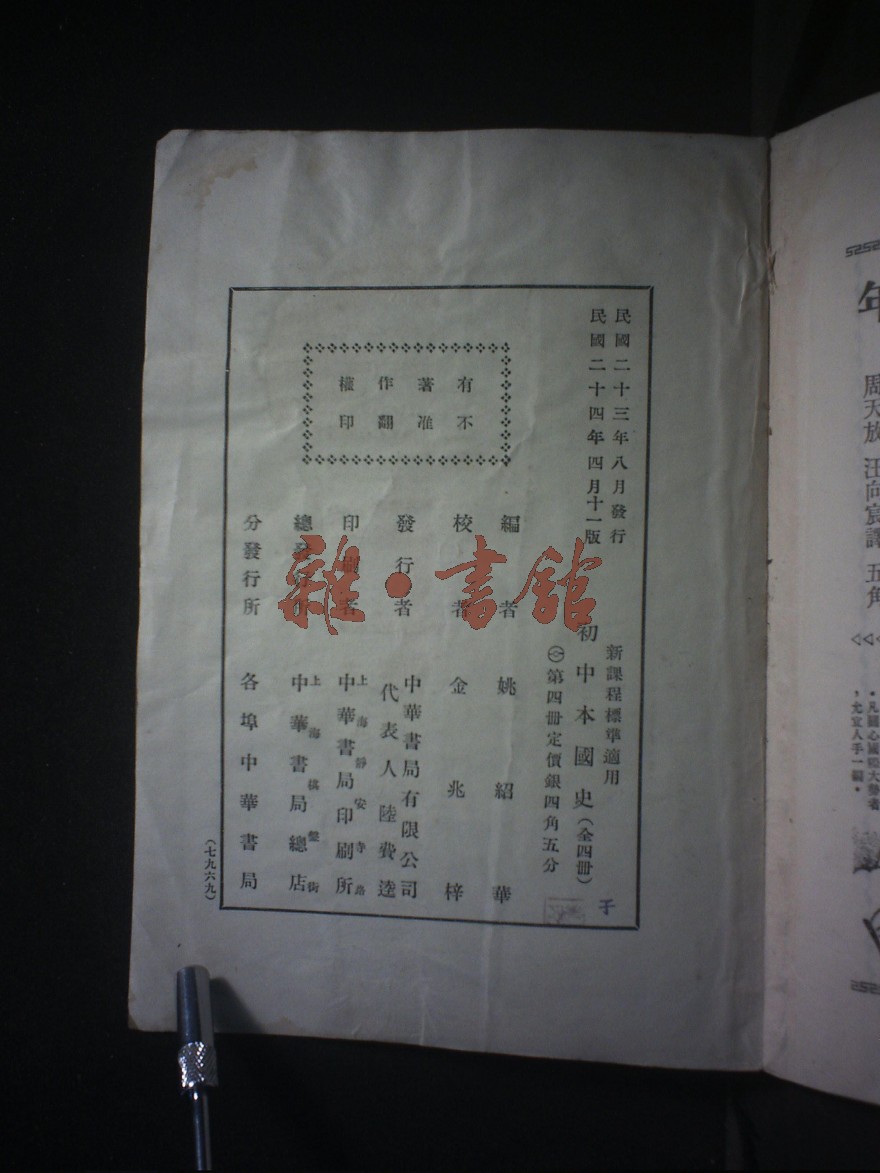 民國二十三年八月發行
民國二十四年四月十一版
新課程標準適用
初中本國史(全四冊)
第四冊定價銀四角五分
子
有著作權
不准翻印
編者 姚紹華
校者 金兆梓
發行者 中華書局有限公司
代表人陸費逵
印刷者 上海靜安寺路
中華書局印刷所
總發行所 上海棋盤街
中華書局總店
分發行所 各埠中華書局
(七九六九)
雜·書館
年
周天放 汪向宸譯 五角
。凡關心國際大勢者
,尤宜人手一編。